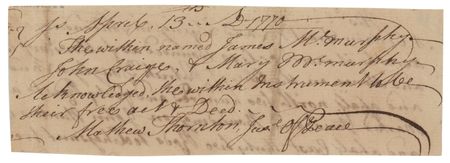 Ss April 13th AD 1770
The within named James McMurphy
John Craige & Mary McMurphy
Acknowledged the within Instrument to be
their free act & Deed
Mathew Thornton Jus. of Peace